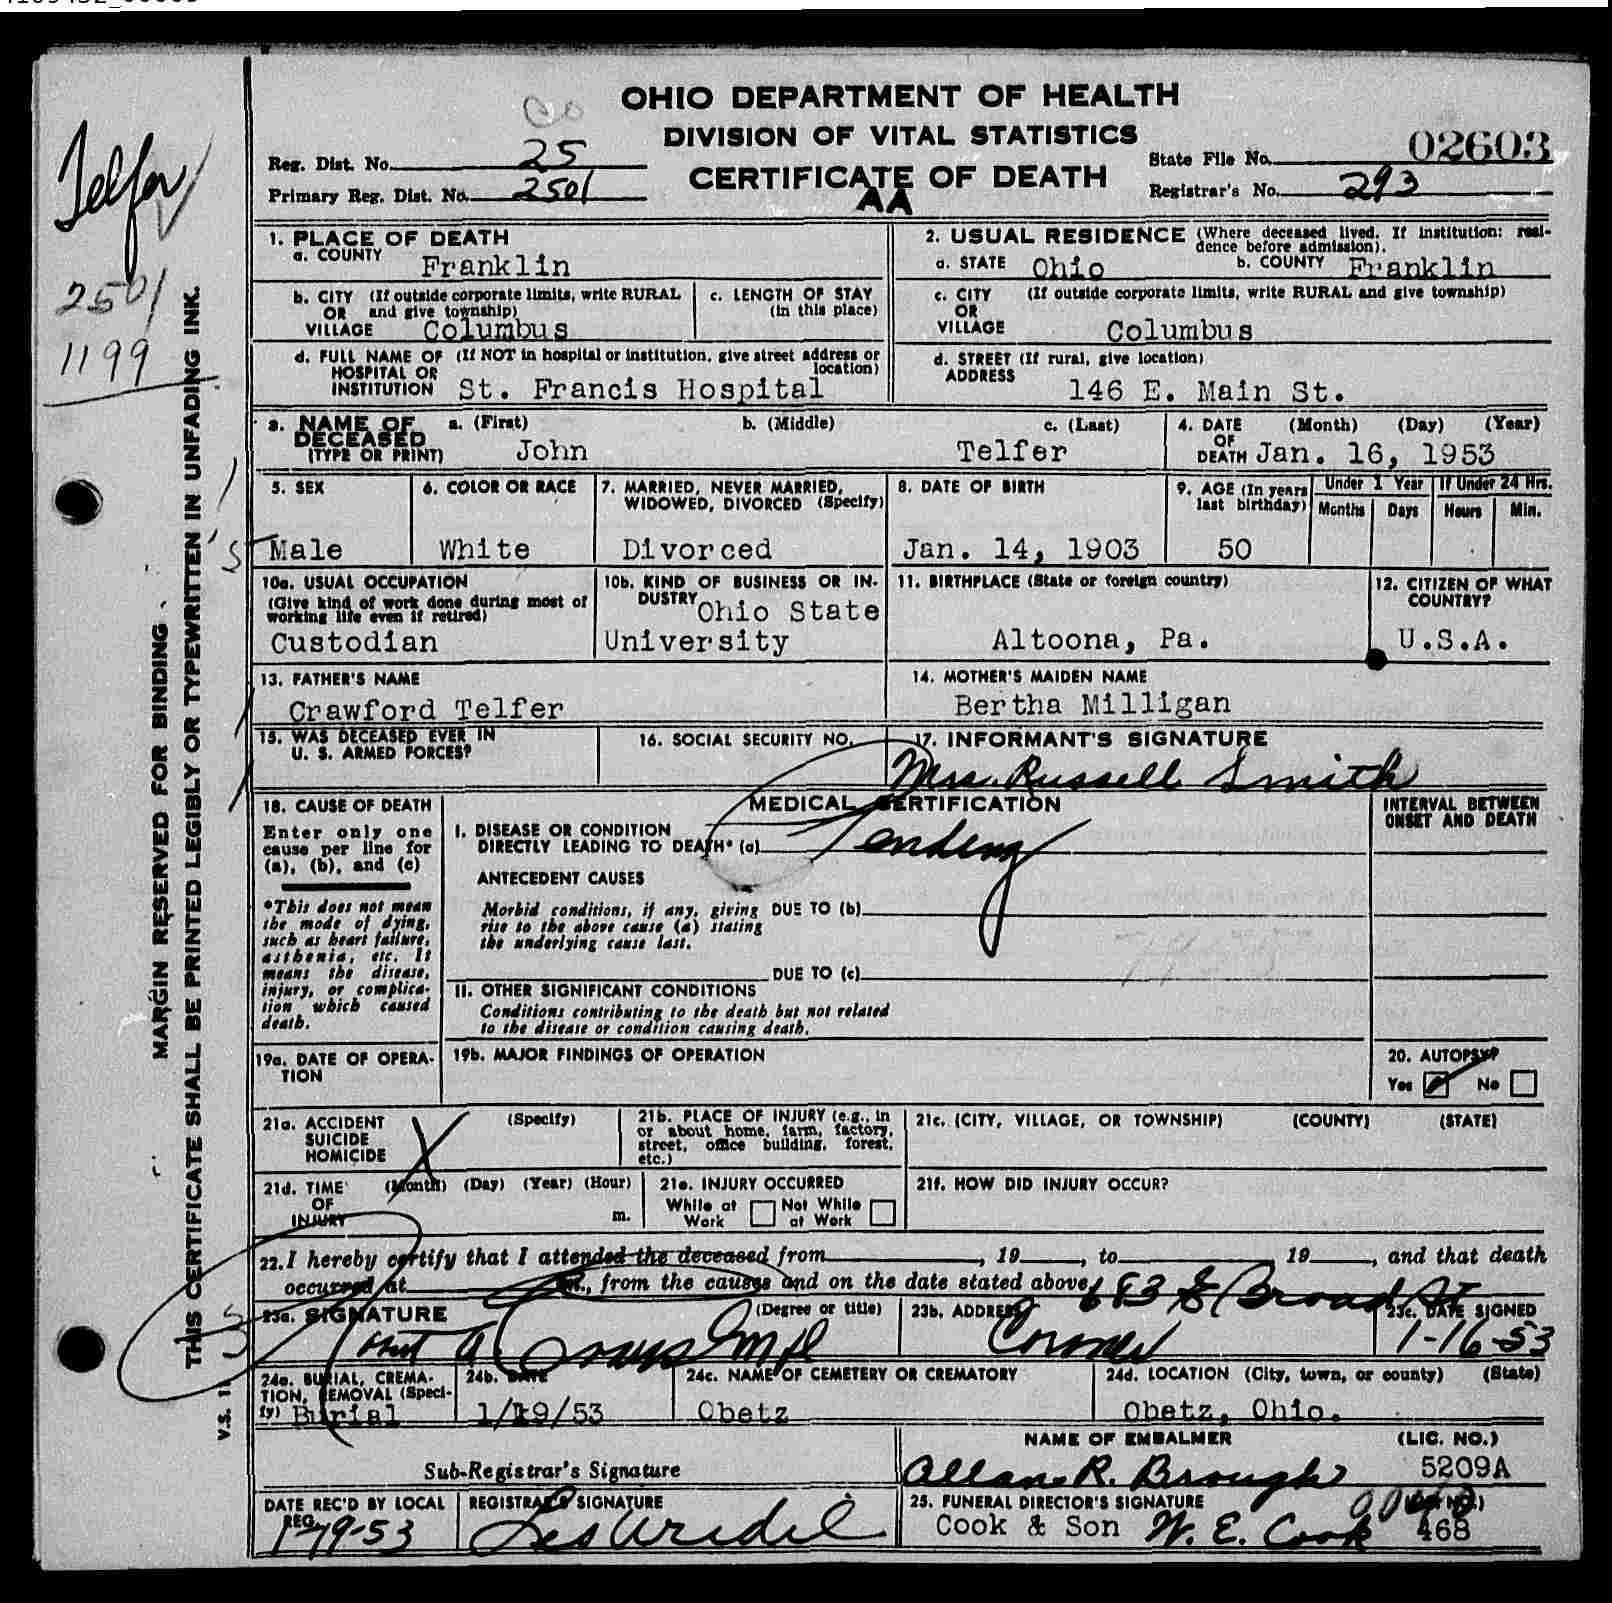 OHIO DEPARTMENT OF HEALTH
DIVISION OF VITAL STATISTICS
CERTIFICATE OF DEATH
AA
Reg. Dist. No. 25
Primary Reg. Dist. No. 2501
State File No. 02603
Registrar's No. 293
Telfer
2501
1199
MARGIN RESERVED FOR BINDING
THIS CERTIFICATE SHALL BE PRINTED LEGIBLY OR TYPEWRITTEN IN UNFADING INK.
V.S. 1
1. PLACE OF DEATH
a. COUNTY Franklin
b. CITY (If outside corporate limits, write RURAL
OR and give township)
VILLAGE Columbus
c. LENGTH OF STAY
(in this place)
d. FULL NAME OF (If NOT in hospital or institution, give street address or
HOSPITAL OR location)
INSTITUTION St. Francis Hospital
2. USUAL RESIDENCE (Where deceased lived. If institution: resi-
dence before admission).
a. STATE Ohio b. COUNTY Franklin
c. CITY (If outside corporate limits, write RURAL and give township)
OR
VILLAGE Columbus
d. STREET (If rural, give location)
ADDRESS 146 E. Main St.
3. NAME OF a. (First) b. (Middle) c. (Last)
DECEASED
(TYPE OR PRINT) John Telfer
4. DATE (Month) (Day) (Year)
OF
DEATH Jan. 16, 1953
5. SEX
Male
6. COLOR OR RACE
White
7. MARRIED, NEVER MARRIED,
WIDOWED, DIVORCED (Specify)
Divorced
8. DATE OF BIRTH
Jan. 14, 1903
9. AGE (In years
last birthday)
50
Under 1 Year
Months Days
If Under 24 Hrs.
Hours Min.
10a. USUAL OCCUPATION
(Give kind of work done during most of
working life even if retired)
Custodian
10b. KIND OF BUSINESS OR IN-
DUSTRY Ohio State
University
11. BIRTHPLACE (State or foreign country)
Altoona, Pa.
12. CITIZEN OF WHAT
COUNTRY?
U.S.A.
13. FATHER'S NAME
Crawford Telfer
14. MOTHER'S MAIDEN NAME
Bertha Milligan
15. WAS DECEASED EVER IN
U. S. ARMED FORCES?
16. SOCIAL SECURITY NO.
17. INFORMANT'S SIGNATURE
Mrs. Russell Smith
18. CAUSE OF DEATH
Enter only one
cause per line for
(a), (b), and (c)
*This does not mean
the mode of dying,
such as heart failure,
asthenia, etc. It
means the disease,
injury, or complica-
tion which caused
death.
MEDICAL CERTIFICATION
I. DISEASE OR CONDITION
DIRECTLY LEADING TO DEATH* (a) Pending
ANTECEDENT CAUSES
Morbid conditions, if any, giving DUE TO (b)
rise to the above cause (a) stating
the underlying cause last.
DUE TO (c)
II. OTHER SIGNIFICANT CONDITIONS
Conditions contributing to the death but not related
to the disease or condition causing death.
INTERVAL BETWEEN
ONSET AND DEATH
19a. DATE OF OPERA-
TION
19b. MAJOR FINDINGS OF OPERATION
20. AUTOPSY?
Yes No
21a. ACCIDENT (Specify)
SUICIDE
HOMICIDE
21b. PLACE OF INJURY (e.g., in
or about home, farm, factory,
street, office building, forest,
etc.)
21c. (CITY, VILLAGE, OR TOWNSHIP) (COUNTY) (STATE)
21d. TIME (Month) (Day) (Year) (Hour)
OF
INJURY m.
21e. INJURY OCCURRED
While at Work Not While at Work
21f. HOW DID INJURY OCCUR?
22. I hereby certify that I attended the deceased from , 19 , to 19 , and that death
occurred at m., from the causes and on the date stated above.
23a. SIGNATURE (Degree or title)
23b. ADDRESS 683 E Broad St
Coroner
23c. DATE SIGNED
1-16-53
24a. BURIAL, CREMA-
TION, REMOVAL (Speci-
fy) Burial
24b. DATE
1/19/53
24c. NAME OF CEMETERY OR CREMATORY
Obetz
24d. LOCATION (City, town, or county) (State)
Obetz, Ohio.
Sub-Registrar's Signature
NAME OF EMBALMER (LIC. NO.)
Allan R. Brough 5209A
DATE REC'D BY LOCAL
REG.
1-19-53
REGISTRAR'S SIGNATURE
25. FUNERAL DIRECTOR'S SIGNATURE
Cook & Son W. E. Cook 468